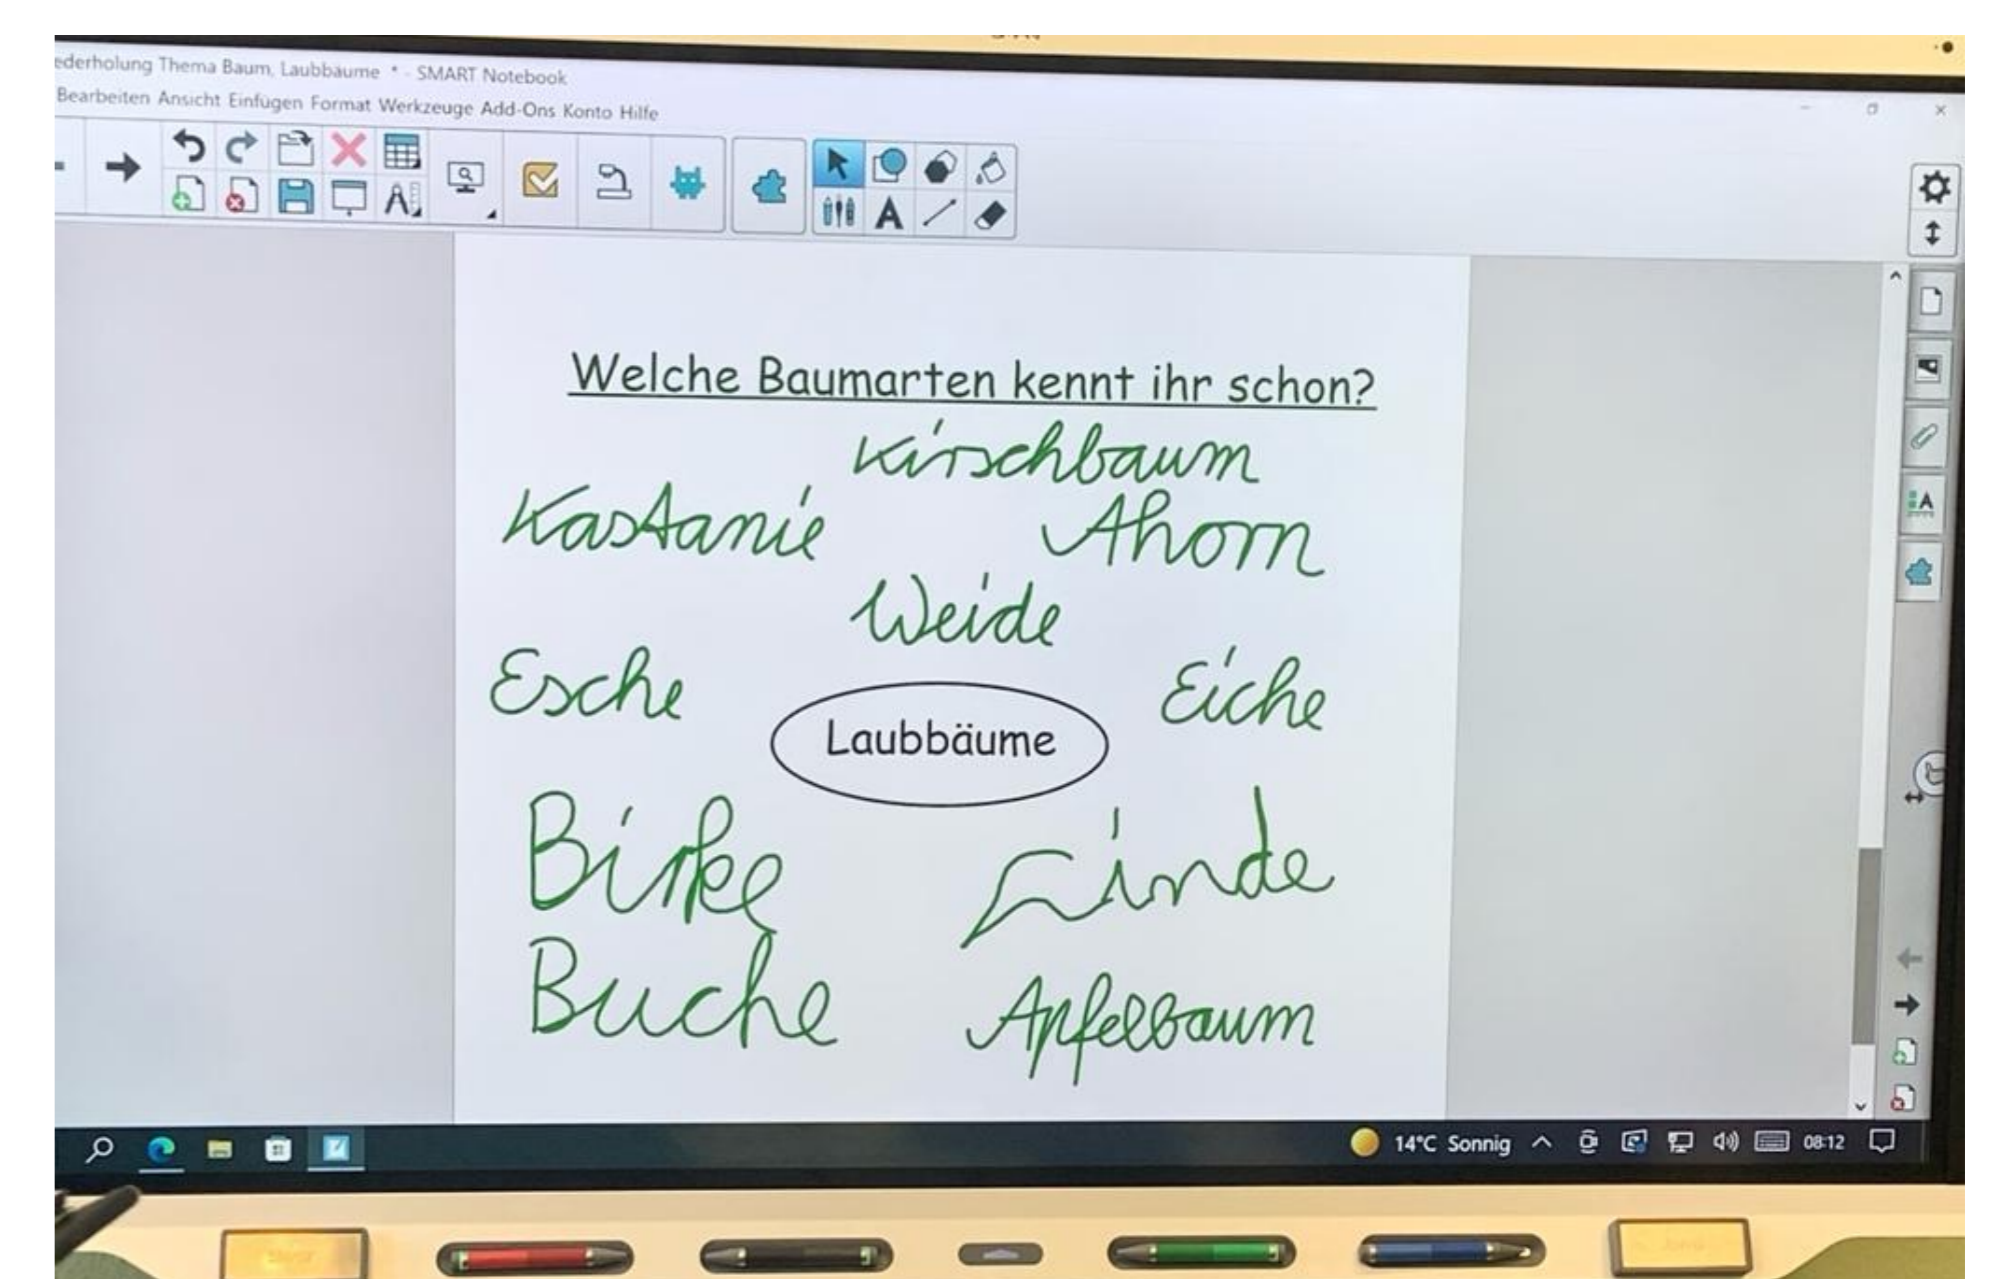 ederholung Thema Baum, Laubbäume * - SMART Notebook
Bearbeiten Ansicht Einfügen Format Werkzeuge Add-Ons Konto Hilfe
Welche Baumarten kennt ihr schon?
Kirschbaum
Kastanie Ahorn
Weide
Esche Eiche
Laubbäume
Birke Linde
Buche Apfelbaum
14°C Sonnig 08:12